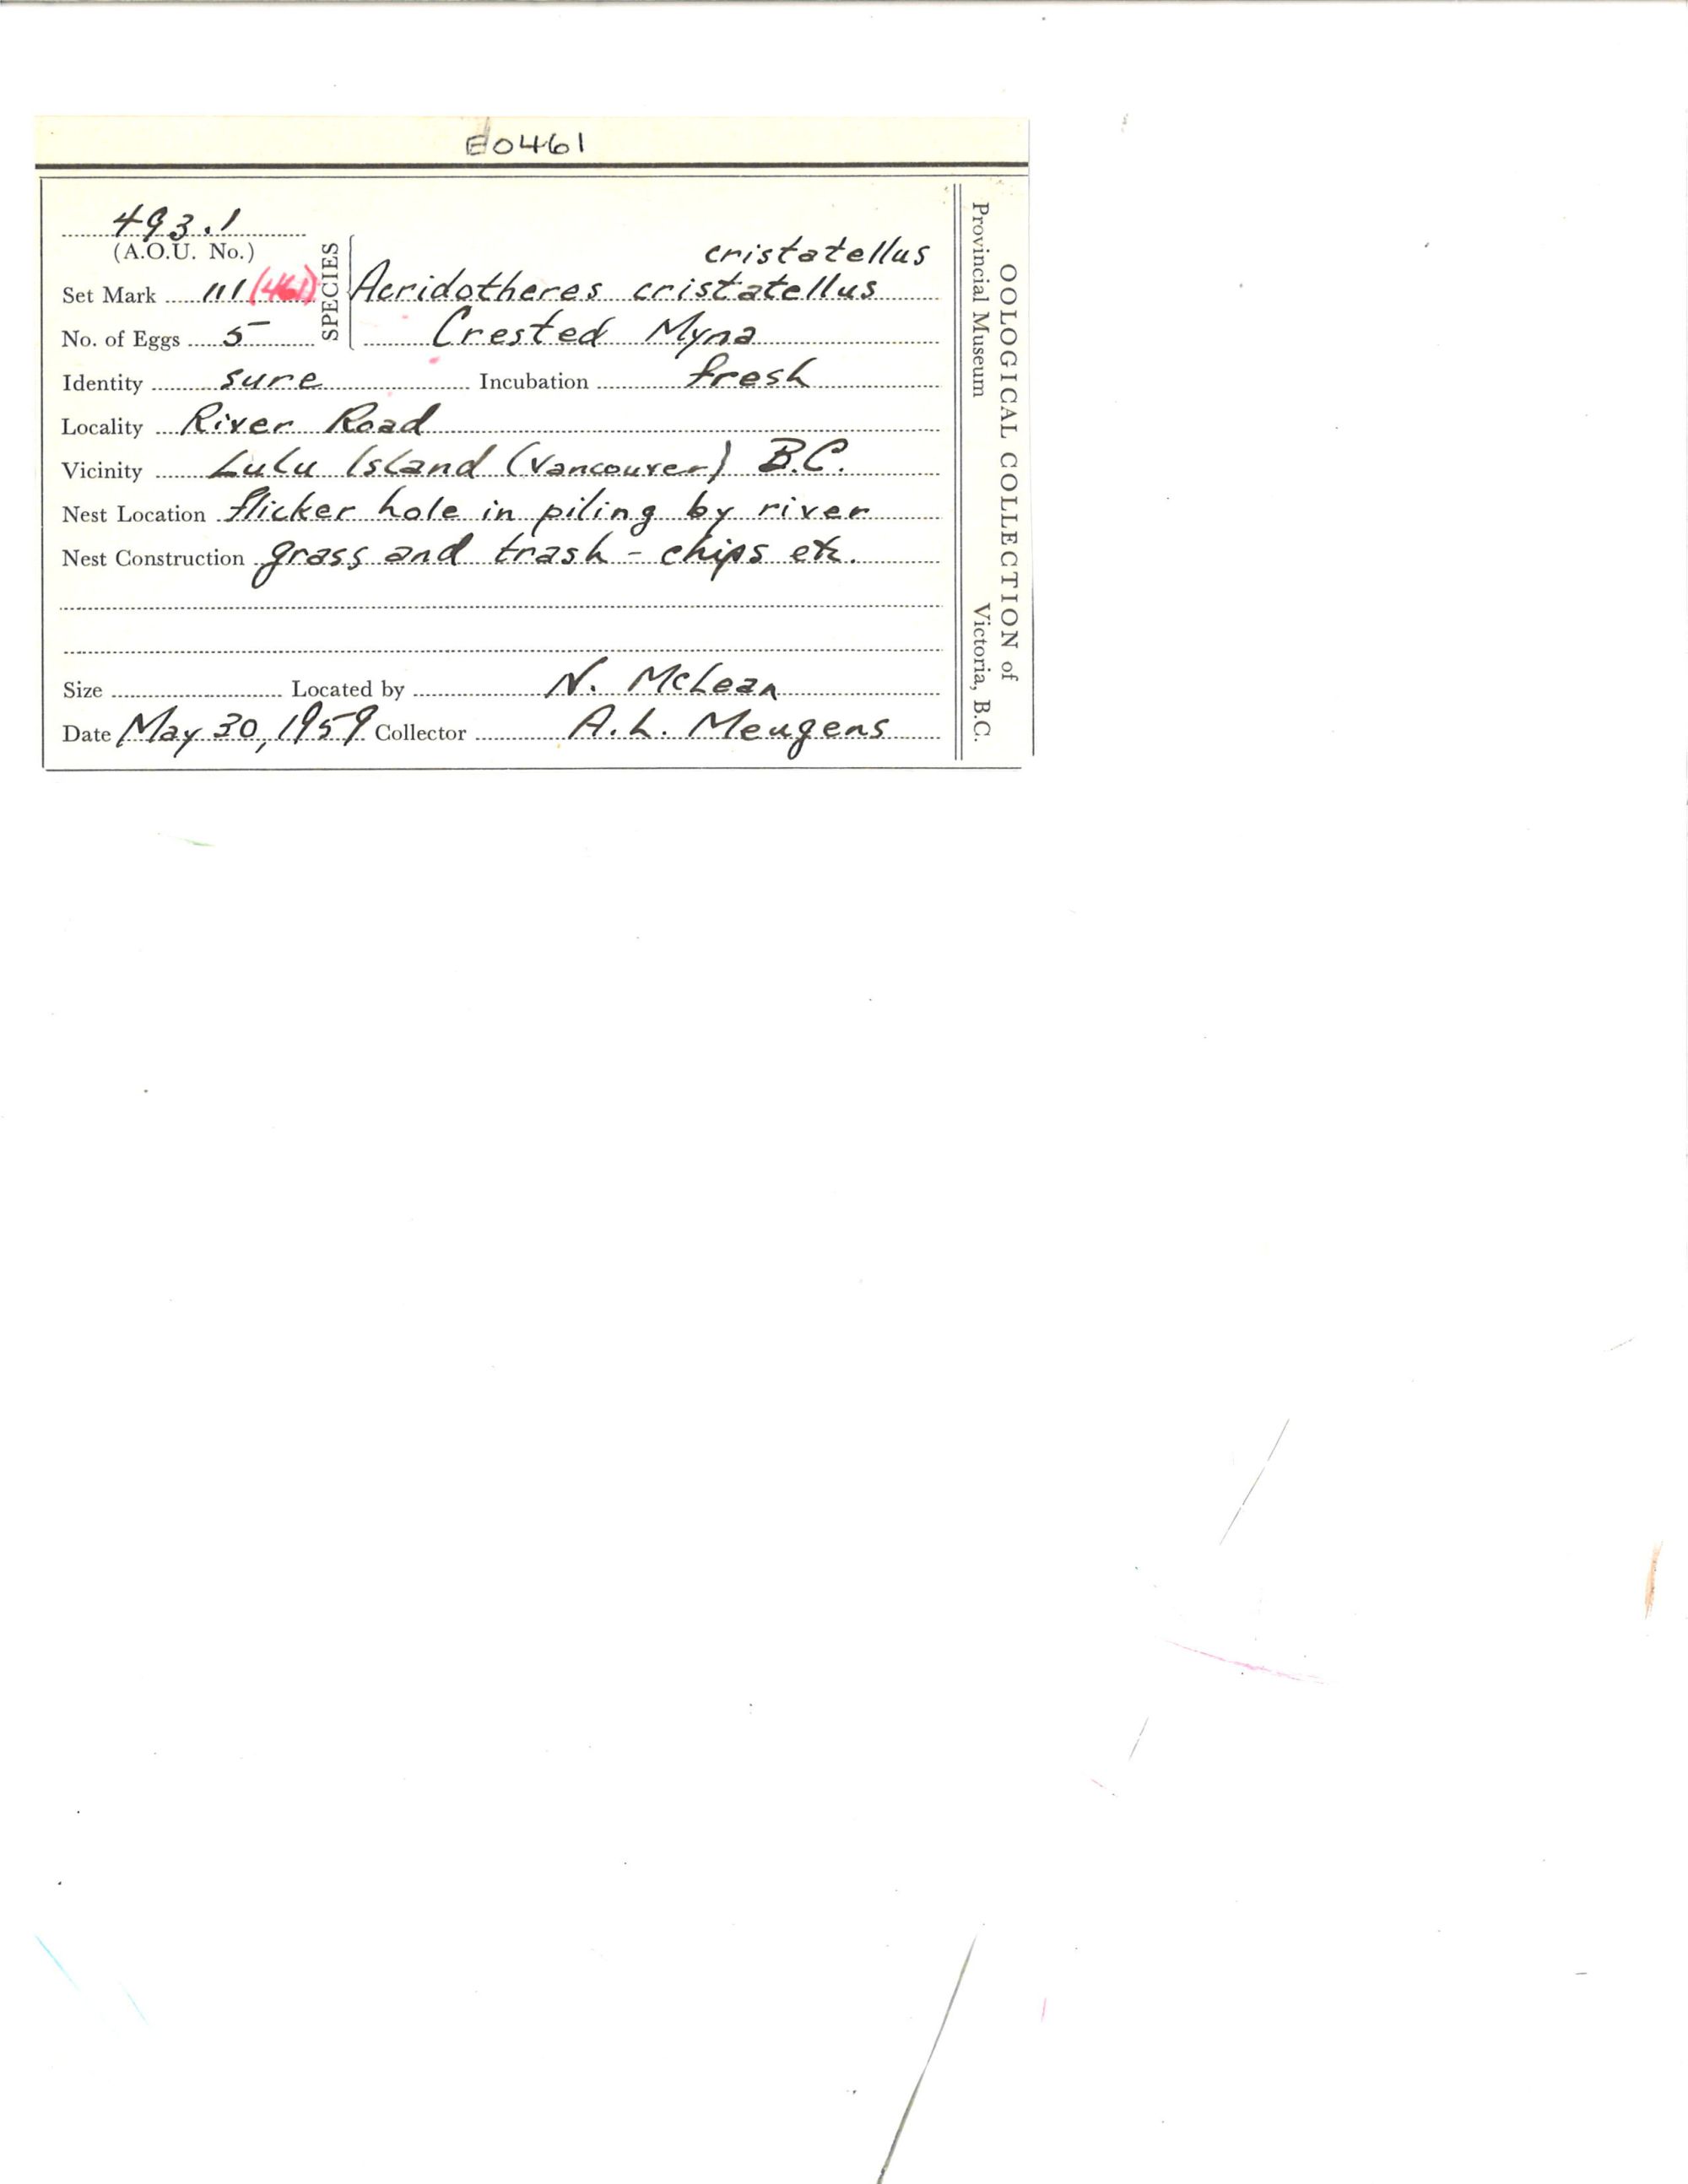 E0461
493.1
(A.O.U. No.)
cristatellus
Set Mark 111 (461) SPECIES Acridotheres cristatellus
No. of Eggs 5 Crested Myna
Identity sure Incubation fresh
Locality River Road
Vicinity Lulu Island (Vancouver) B.C.
Nest Location flicker hole in piling by river
Nest Construction grass and trash - chips etc.
Size Located by N. McLean
Date May 30, 1959 Collector A.L. Meugens
OOLOGICAL COLLECTION of
Provincial Museum Victoria, B.C.